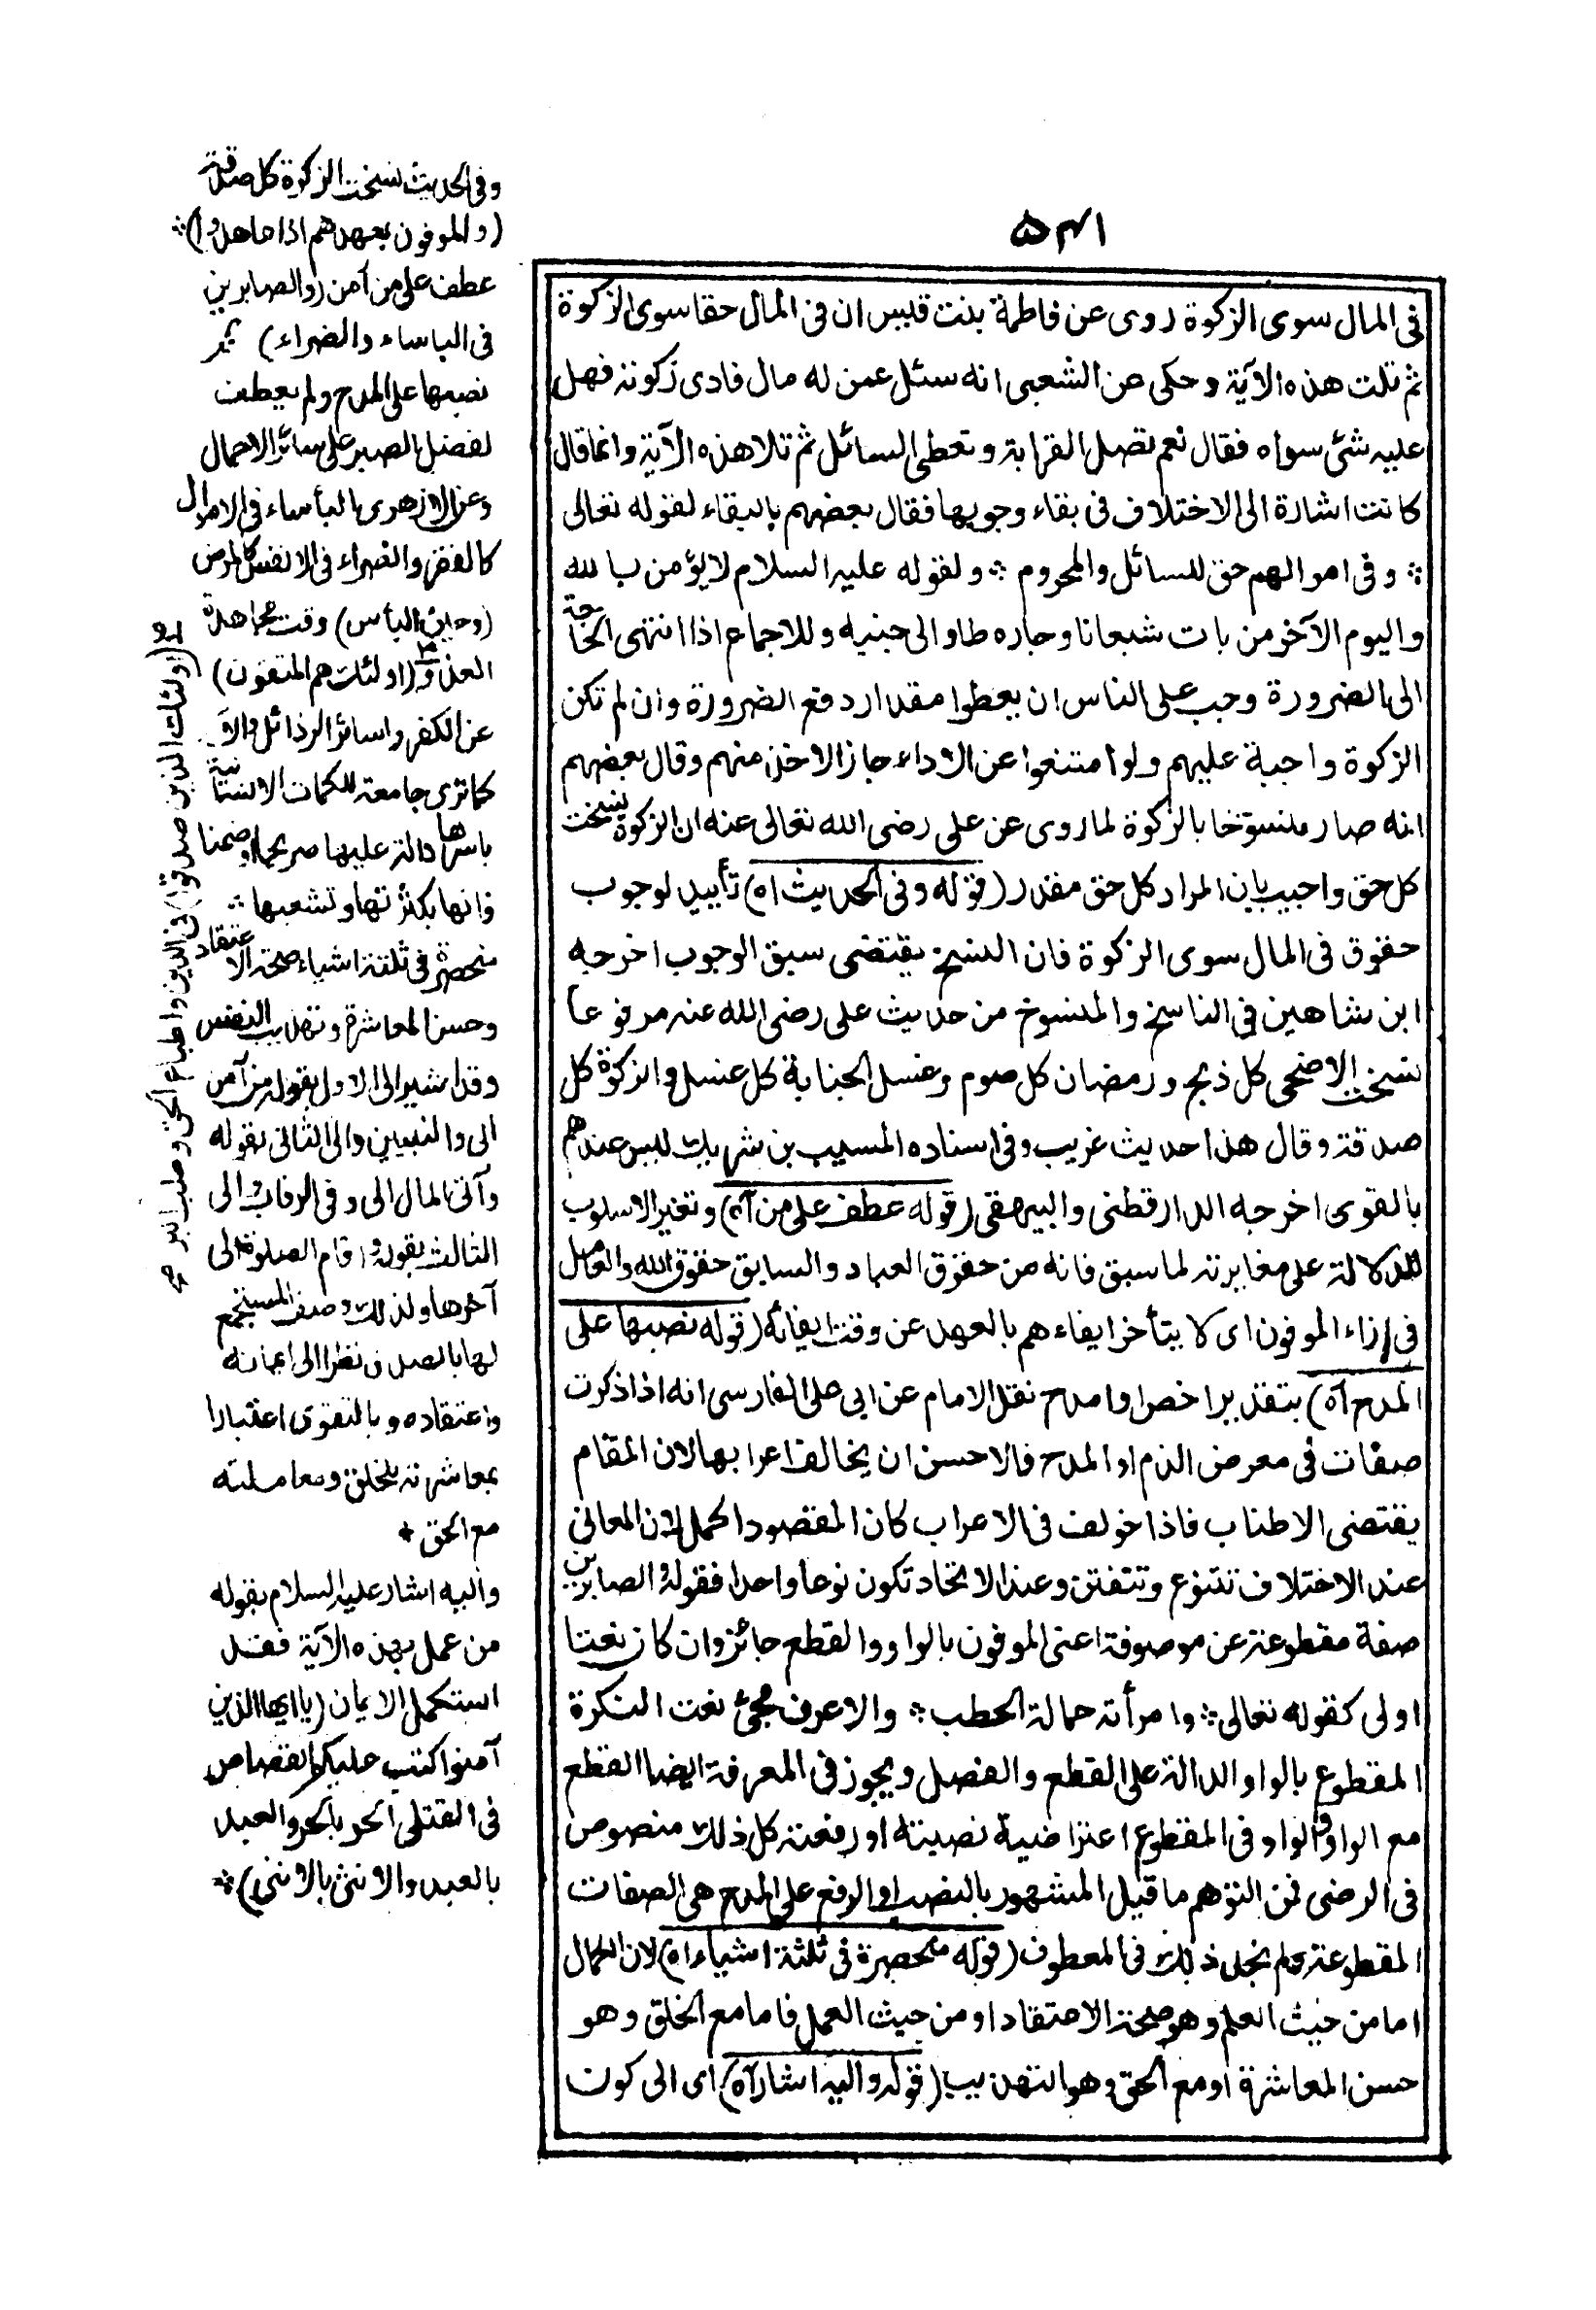 ۵۴۱
فى المال سوى الزكوة روى عن فاطمة بنت قيس ان فى المال حقا سوى الزكوة
ثم تلت هذه الآية وحكى عن الشعبى انه سئل عمن له مال فادى زكوته فهل
عليه شئ سواه فقال نعم تصل القرابة وتعطى السائل ثم تلا هذه الآية وانما قال
كانت اشارة الى الاختلاف فى بقاء وجوبها فقال بعضهم بالبقاء لقوله تعالى
؞ وفى اموالهم حق للسائل والمحروم ؞ ولقوله عليه السلام لا يؤمن بالله
واليوم الآخر من بات شبعانا وجاره طاو الى جنبه وللاجماع اذا انتهى الحاجة
الى الضرورة وجب على الناس ان يعطوا مقدار دفع الضرورة وان لم تكن
الزكوة واجبة عليهم ولو امتنعوا عن الاداء جاز الاخذ منهم وقال بعضهم
انه صار منسوخا بالزكوة لما روى عن على رضى الله تعالى عنه ان الزكوة نسخت
كل حق واجيب بان المراد كل حق مقدر (قوله وفى الحديث اه) تأييد لوجوب
حقوق فى المال سوى الزكوة فان النسخ يقتضى سبق الوجوب اخرجه
ابن شاهين فى الناسخ والمنسوخ من حديث على رضى الله عنه مرفوعا
نسخت الاضحى كل ذبح ورمضان كل صوم وغسل الجنابة كل غسل والزكوة كل
صدقة وقال هذا حديث غريب وفى اسناده المسيب بن شريك ليس عندهم
بالقوى اخرجه الدارقطنى والبيهقى (قوله عطف على من آه) وتغير الاسلوب
للدلالة على مغايرته لما سبق فانه من حقوق العباد والسابق حقوق الله والعامل
فى ازاء الموفون اى لا يتأخر ايفاءهم بالعهد عن وقت ايفائه (قوله نصبها على
المدح آه) بتقدير اخص او امدح نقل الامام عن ابى على الفارسى انه اذا ذكرت
صفات فى معرض الذم او المدح فالاحسن ان يخالف اعرابها لان المقام
يقتضى الاطناب فاذا خولف فى الاعراب كان المقصود اكمل لان المعانى
عند الاختلاف تتنوع وتتفنن وعند الاتحاد تكون نوعا واحدا فقوله الصابرين
صفة مقطوعة عن موصوفة اعنى الموفون بالواو والقطع جائز وان كان نعتا
اولى كقوله تعالى ؞ وامرأته حمالة الحطب ؞ والاعرف مجئ نعت النكرة
المقطوع بالواو الدالة على القطع والفصل ويجوز فى المعرفة ايضا القطع
مع الواو والواو فى المقطوع اعتراضية نصبته او رفعته كل ذلك منصوص
فى الرضى فمن التوهم ما قيل المشهور بالنصب او الرفع على المدح هى الصفات
المقطوعة ولم نجد ذلك فى المعطوف (قوله منحصرة فى ثلثة اشياء اه) لان الكمال
اما من حيث العلم وهو صحة الاعتقاد او من حيث العمل فاما مع الخلق وهو
حسن المعاشرة او مع الحق وهو التهذيب (قوله واليه اشار آه) اى الى كون
وفى الحديث نسخت الزكوة كل صدقة
(والموفون بعهدهم اذا عاهدوا) ؞
عطف على من آمن (والصابرين
فى الباساء والضراء)
نصبها على المدح ولم يعطف
لفضل الصبر على سائر الاعمال
وعن الازهرى البأساء فى الاموال
كالفقر والضراء فى الانفس كالمرض
(وحين البأس) وقت مجاهدة
العدو (اولئك هم المتقون)
عن الكفر وسائر الرذائل والآية
كما ترى جامعة للكمالات الانسانية
باسرها دالة عليها صريحا او ضمنا
فانها بكثرتها وتشعبها ؞
منحصرة فى ثلثة اشياء صحة الاعتقاد
وحسن المعاشرة وتهذيب النفس
وقد اشير الى الاول بقوله من آمن
الى والنبيين والى الثانى بقوله
وآتى المال الى وفى الرقاب والى
الثالث بقوله واقام الصلوة الى
آخرها ولذلك وصف المستجمع
لها بالصدق نظرا الى ايمانه
واعتقاده وبالتقوى اعتبارا
بمعاشرته للخلق ومعاملته
مع الحق ٭
واليه اشار عليه السلام بقوله
من عمل بهذه الآية فقد
استكمل الايمان (يا ايها الذين
آمنوا كتب عليكم القصاص
فى القتلى الحر بالحر والعبد
بالعبد والانثى بالانثى) ؞
(اولئك الذين صدقوا) فى الدين واتباع الحق وطلب البر